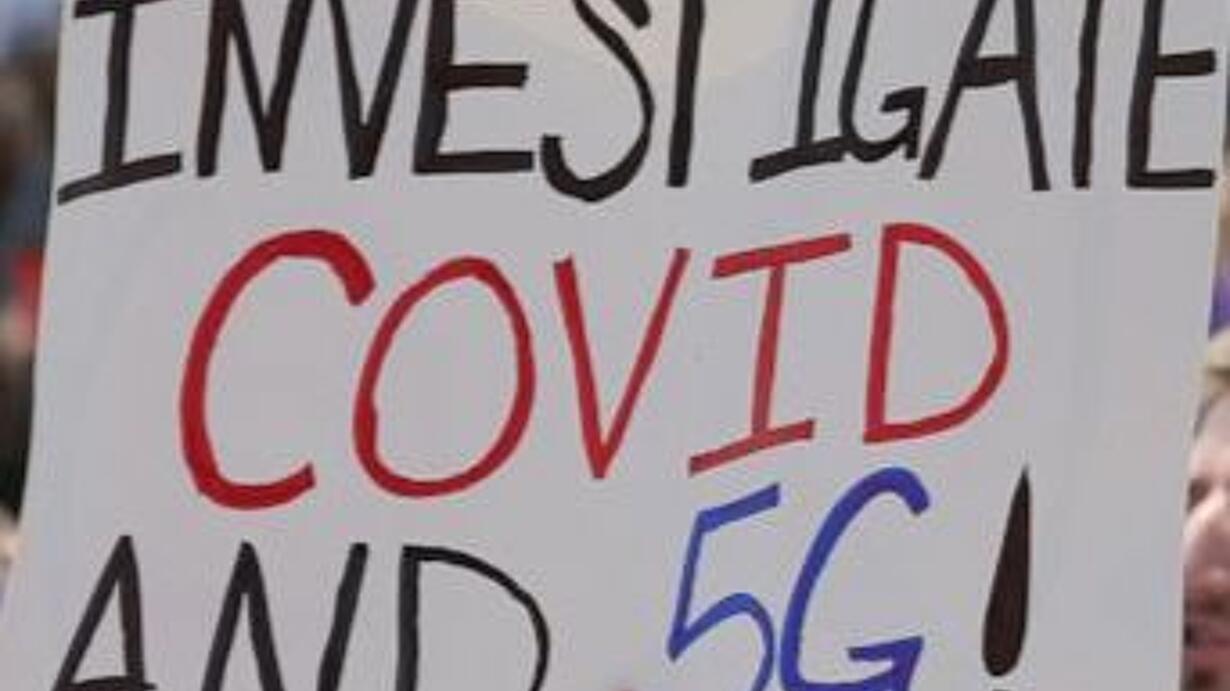 INVESTIGATE
COVID
AND 5G!